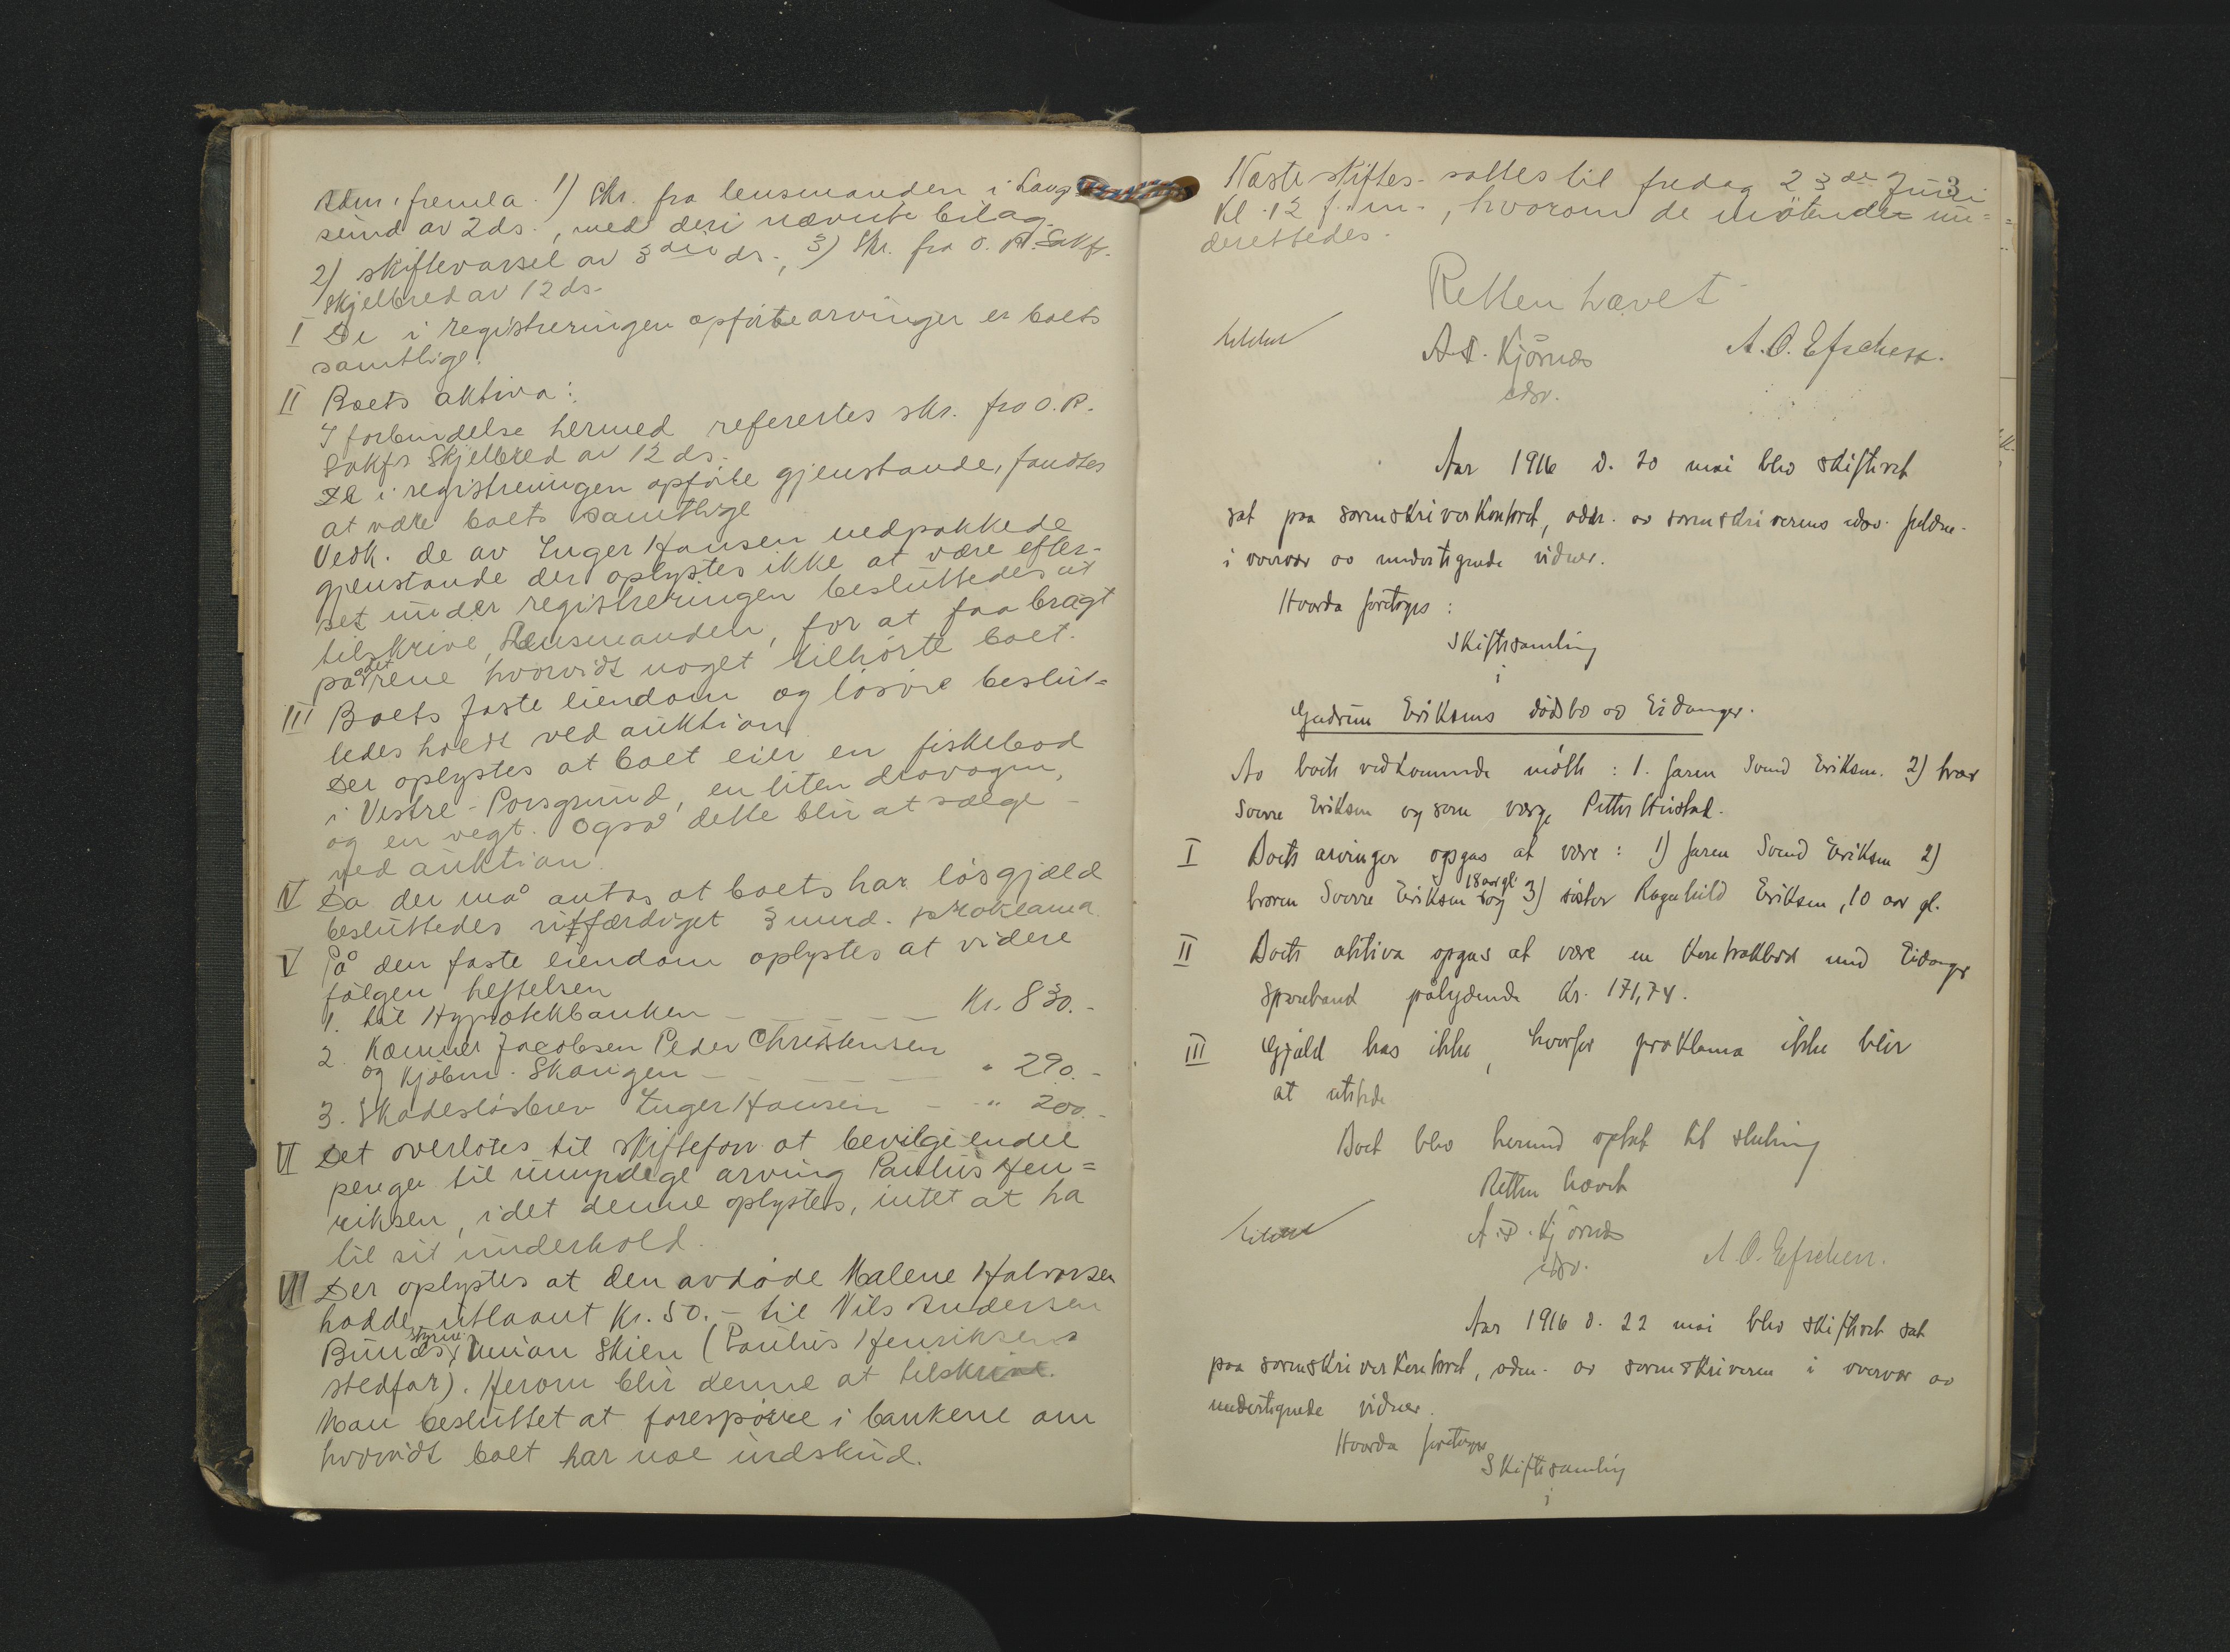 Adm. fremla. 1) Skr. fra lensmanden i Lange
sund av 2 ds., med deri nævnte bilag.
2) skiftevarsel av 3die ds., 3) Skr. fra O. R. Sakf.
Skjelbred av 12 ds.
I De i registreringen opførte arvinger er boets
samtlige.
II Boets aktiva:
I forbindelse hermed refertes skr. fra O.R.
Sakfr Skjelbred av 12 ds.
De i registreringen opførte gjenstande, fandtes
at være boets samtlige
Vedk. de av Inger Hansen nedpakkede
gjenstande der oplystes ikke at være efter-
set under registreringen besluttedes at
tilskrive Lensmanden, for at faa bragt
på det rene hvorvidt noget tilhørte boet.
III Boets faste eiendom og løsøre beslut=
tedes holdt ved auktion
Der oplystes at boet eier en fiskebod
i Vestre-Porsgrund, en liten dravogn,
og en vegt. Også dette blir at sælge
ved auktion.
IV Da der må antas at boets har løsgjæld
besluttedes utfærdiget 3 mnd. proklama
V På den faste eiendom oplystes at videre
følgen heftelsen
1. til Hypotekbanken - - - - - Kr. 830.-
2. Kæmner Jacobsen Peder Christensen
og Kjøbm. Skaugen - - - - " 290.-
3. Skadesløsbrev Inger Hansen - - " 200.-
VI Det overlotes til skifteforv. at bevilge endel
penger til umyndige arving Paulus Hen=
riksen, idet denne oplystes, intet at ha
til sit underhold.
VII Der oplystes at den avdøde Malene Halvorsen
hadde utlaant Kr. 50.- til Nils Andersen
Bunds Union Skien (Paulus Henriksens
stedfar). Herom blir denne at tilskrive.
Man besluttet at forespørre i bankene om
hvorvidt boet har noe indskud.
3
Næste skiftes. sattes til fredag 23de Juni
Kl. 12 f.m., hvorom de møtende un=
derettedes.
Retten hævet
A. S. Kjörnæs
edsv.
Aar 1916 d. 20 mai blev skifteret
sat paa sorenskriverkontoret, adm. av sorenskriverens edsv. fuldm.
i overvær av undertegnede vidner.
Hvorda foretoges:
Skiftesamling
i
Gudrun Eriksens dødsbo av Eidanger.
Av boets vedkommende møtte: 1. faren Svend Eriksen. 2) bror
Sverre Eriksen og som verge Petter
I Boets arvinger opgas at være: 1) faren Svend Eriksen 2)
broren Sverre Eriksen 18 aar gl. og 3) søster Ragnhild Eriksen, 10 aar gl.
II Boets aktiva opgas at være en Kontrabok med Eidanger
Sparebank pålydende Kr. 171,74.
III Gjæld has ikke, hvorfor proklama ikke blir
at utstede
Boet blev herund optat til slutning
Retten hævet
A. S. Kjörnæs
edsv.
Aar 1916 d. 22 mai blev skifteret sat
paa sorenskriverkontoret, adm. av sorenskriveren i overvær av
undertegnede vidner.
Hvorda foretoges
Skiftesamling
i